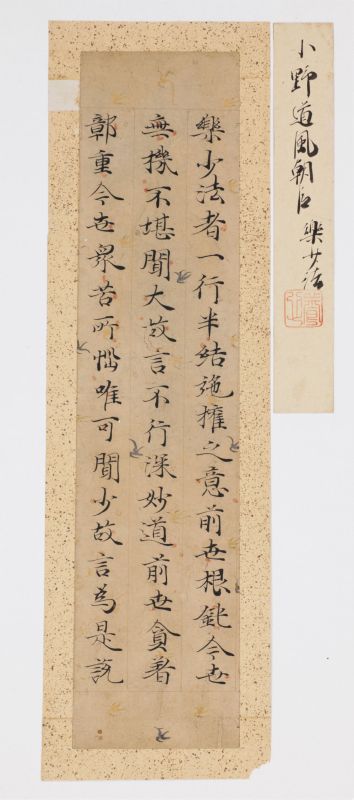 小野道風朝臣 樂少法
樂少法者一行半結施權之意前世根鈍今世
無機不堪聞大故言不行深妙道前世貪著
鄣重今世衆苦所惱唯可聞少故言為是説